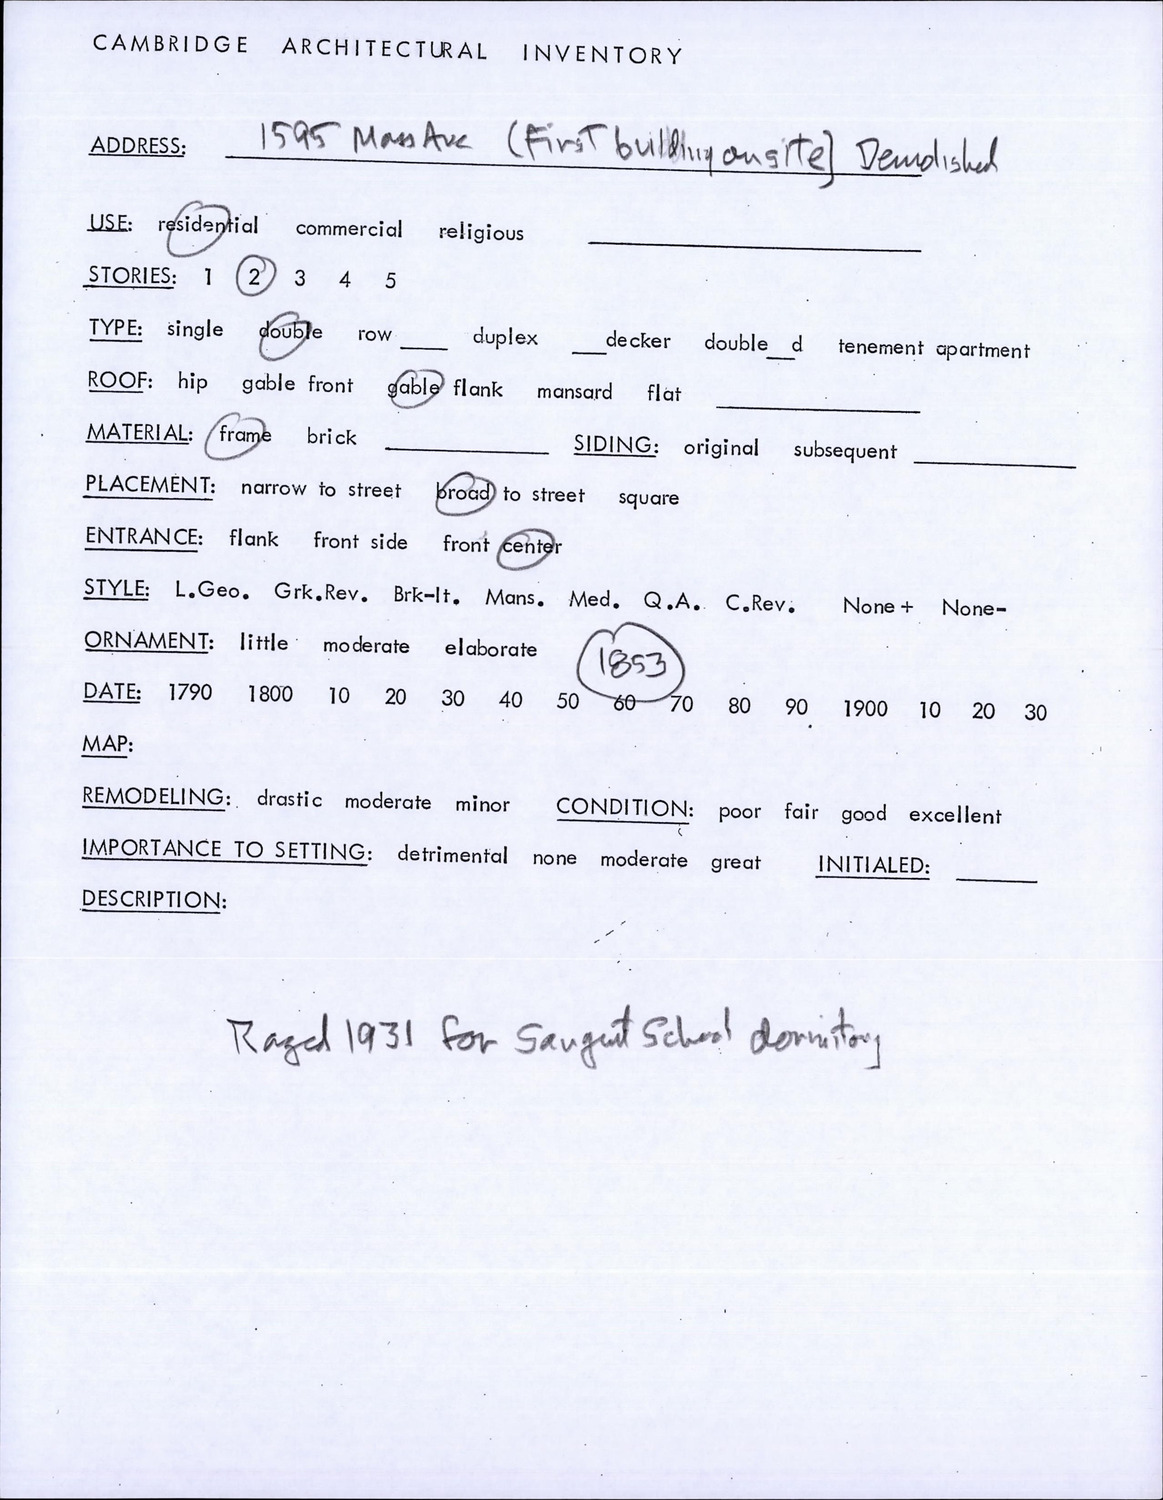 CAMBRIDGE ARCHITECTURAL INVENTORY
ADDRESS: 1595 Mass Ave (First building on site] Demolished
USE: residential commercial religious
STORIES: 1 2 3 4 5
TYPE: single double row ___ duplex ___decker double__d tenement apartment
ROOF: hip gable front gable flank mansard flat
MATERIAL: frame brick SIDING: original subsequent
PLACEMENT: narrow to street broad to street square
ENTRANCE: flank front side front center
STYLE: L.Geo. Grk.Rev. Brk-It. Mans. Med. Q.A. C.Rev. None+ None-
ORNAMENT: little moderate elaborate 1853
DATE: 1790 1800 10 20 30 40 50 60 70 80 90 1900 10 20 30
MAP:
REMODELING: drastic moderate minor CONDITION: poor fair good excellent
IMPORTANCE TO SETTING: detrimental none moderate great INITIALED:
DESCRIPTION:
Razed 1931 for Sargent School dormitory